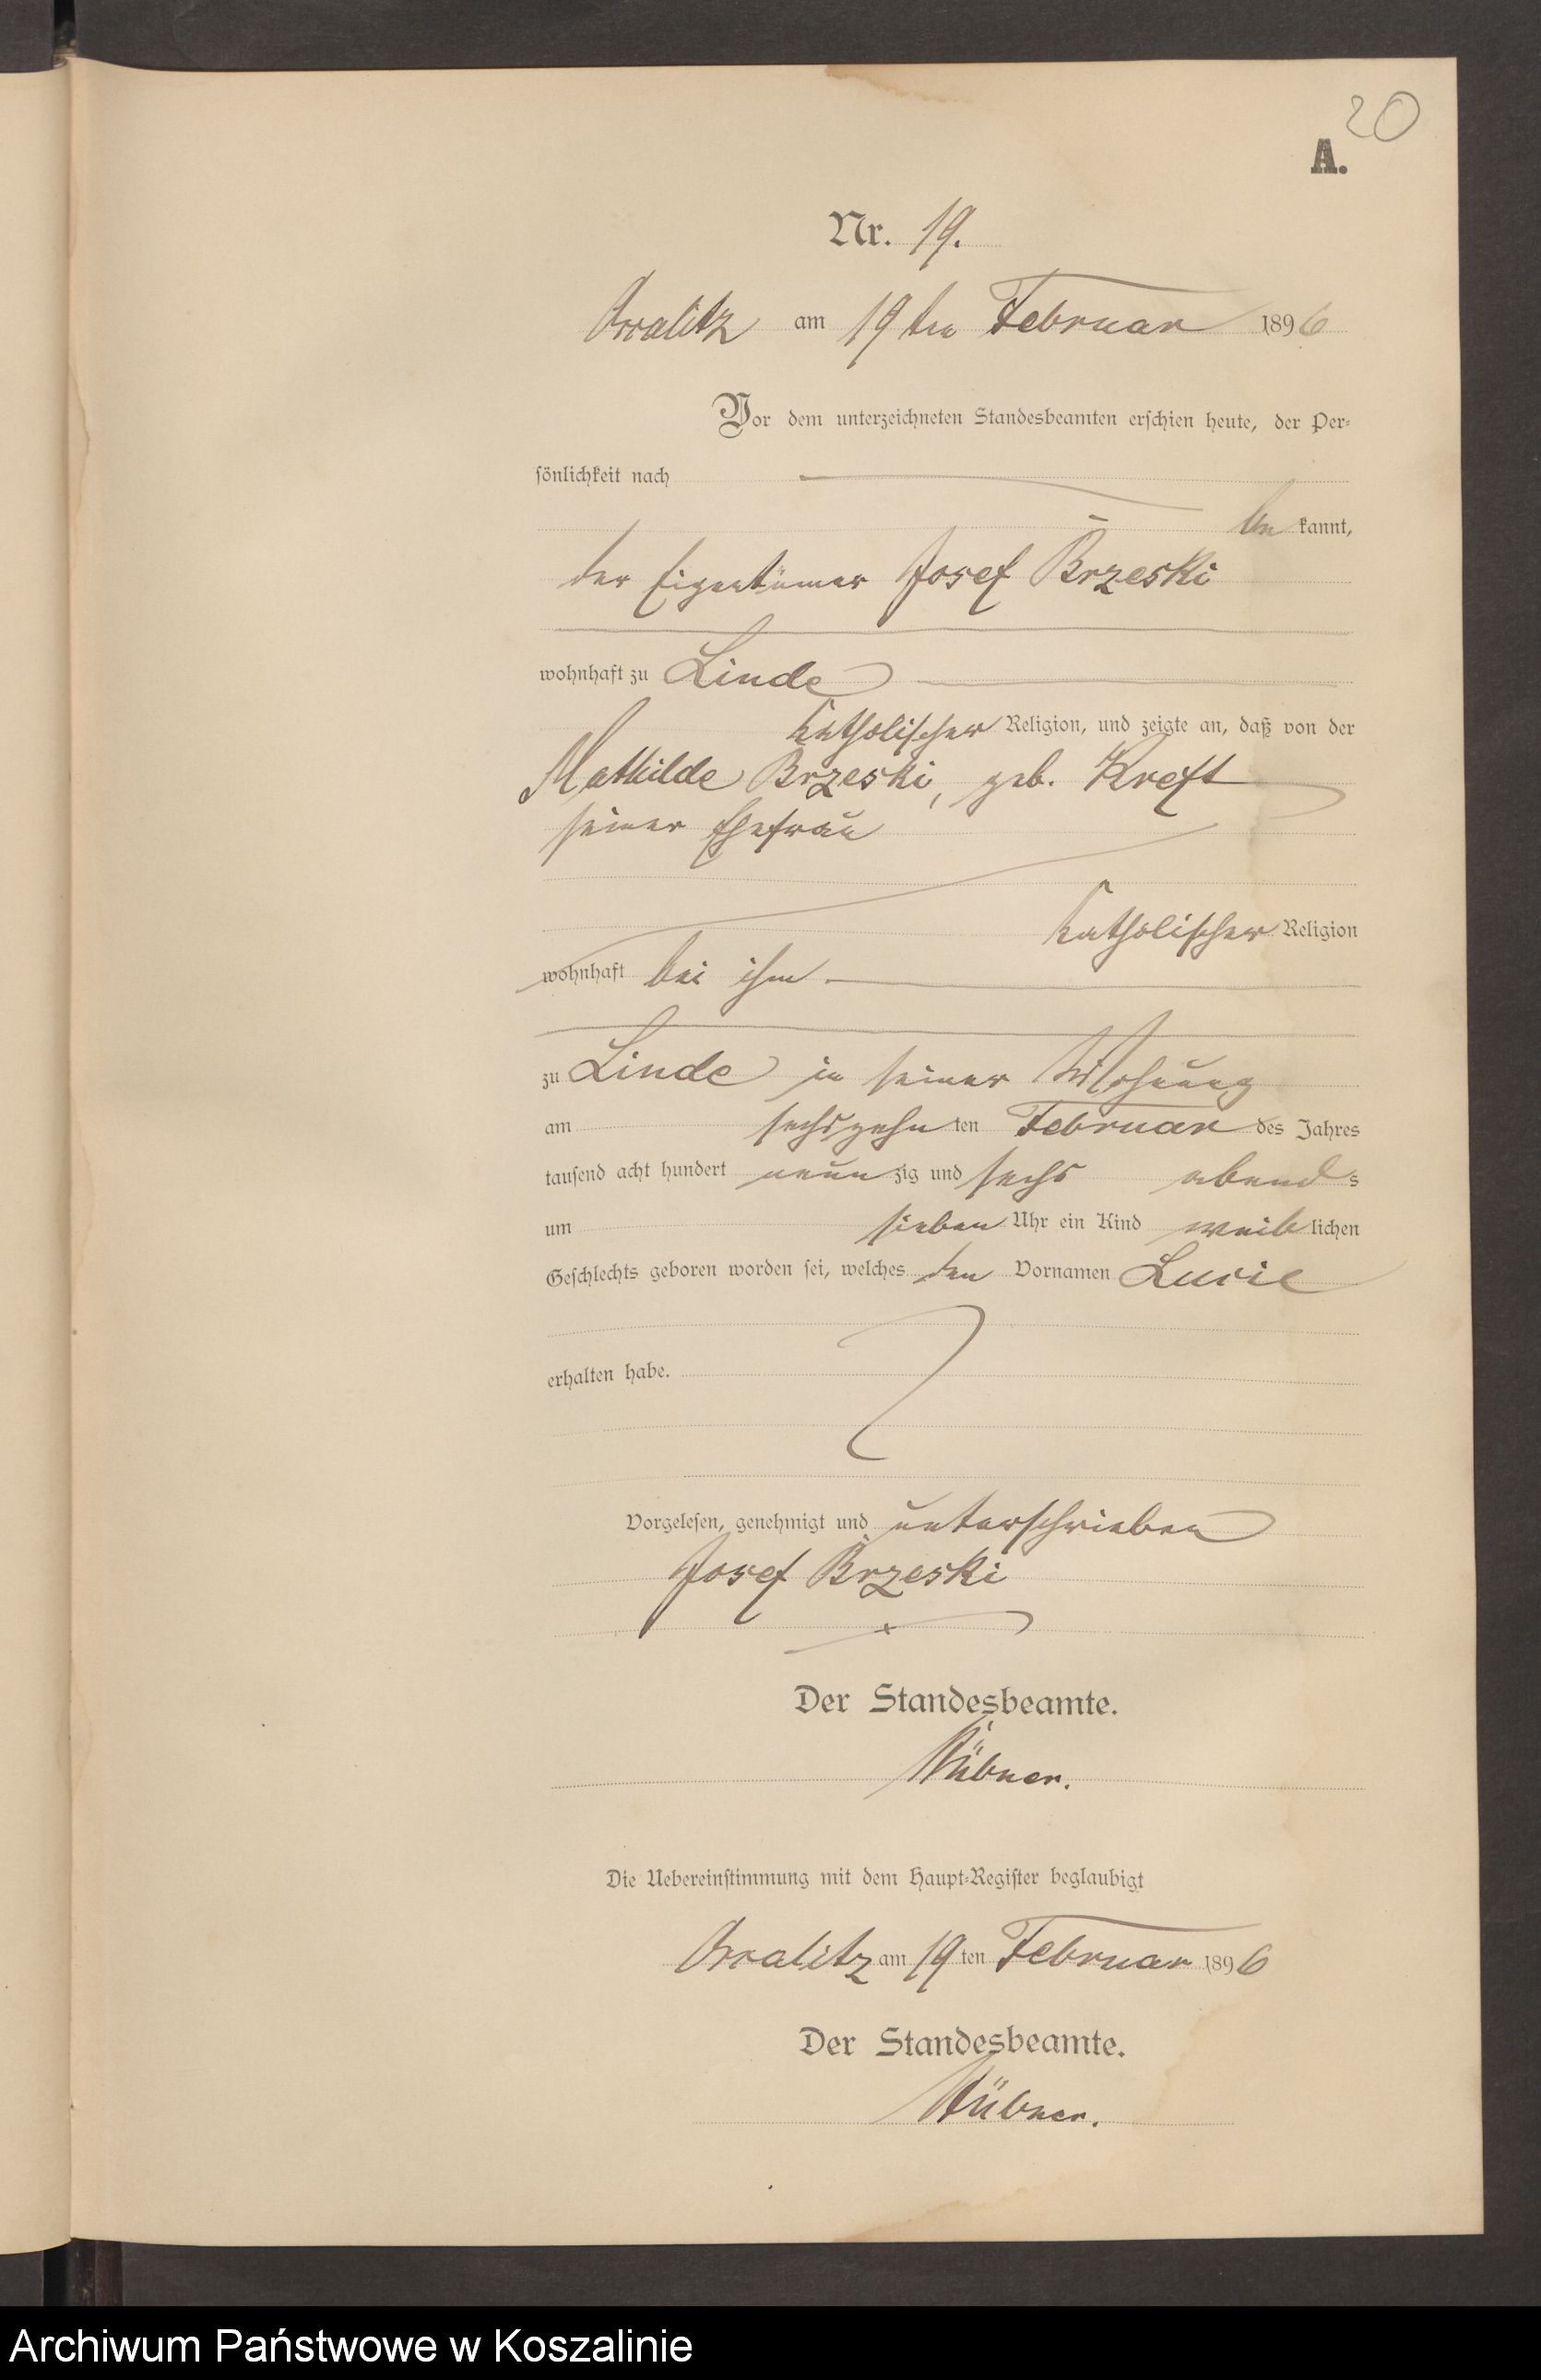 20
A.
Nr. 19.
am 19ten Februar 1896
Vor dem unterzeichneten Standesbeamten erschien heute, der Per-
sönlichkeit nach
be kannt,
der Eigentümer Josef Brzeski
wohnhaft zu Linde
katholischer Religion, und zeigte an, daß von der
Mathilde Brzeski, geb. Kreft
seiner Ehefrau
katholischer Religion
wohnhaft bei ihm
zu Linde in seiner Wohnung
am sechszehn ten Februar des Jahres
tausend acht hundert neun zig und sechs abend s
um sieben Uhr ein Kind weib lichen
Geschlechts geboren worden sei, welches den Vornamen Lucie
erhalten habe.
Vorgelesen, genehmigt und unterschrieben
Josef Brzeski
Der Standesbeamte.
Hübner.
Die Uebereinstimmung mit dem Haupt-Register beglaubigt
am 19 ten Februar 1896
Der Standesbeamte.
Hübner.
Archiwum Państwowe w Koszalinie